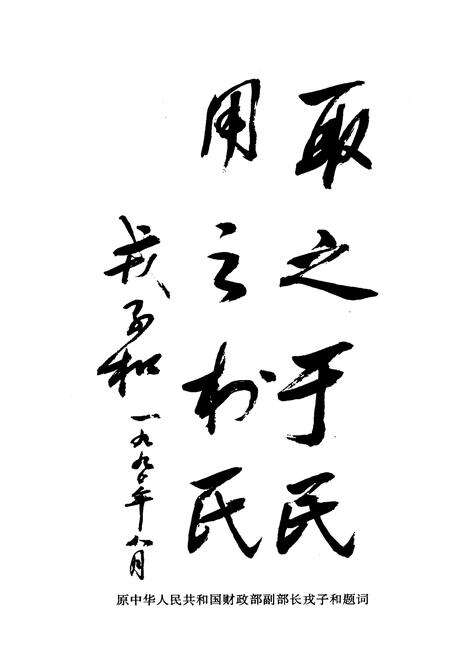 取之于民
用之于民
戎子和
一九九〇年八月
原中华人民共和国财政部副部长戎子和题词